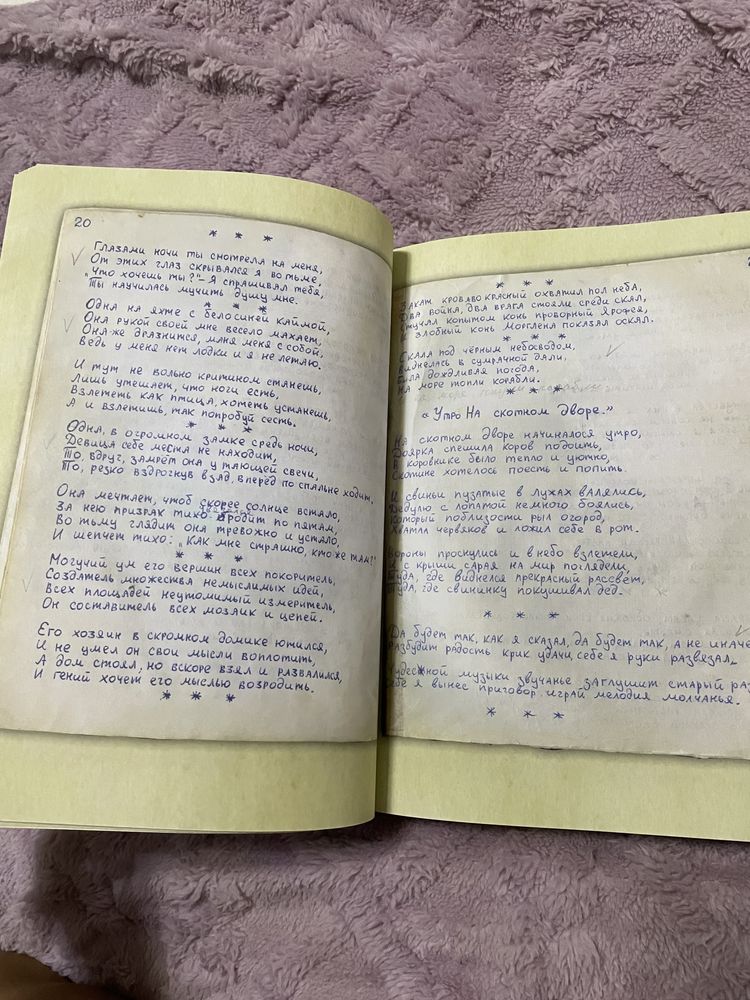 20
* * *
Глазами ночи ты смотрела на меня,
От этих глаз скрывался я во тьме,
„Что хочешь ты?" – Я спрашивал тебя,
Ты научилась мучить душу мне.
* * *
Одна на яхте с белосиней каймой,
Она рукой своей мне весело махает,
Она же дразнится, маня меня с собой,
Ведь у меня нет лодки и я не летаю.
И тут не вольно критиком станешь,
Лишь утешает, что ноги есть,
Взлететь как птица, хотеть устанешь,
А и взлетишь, так попробуй сесть.
* * *
Одна, в огромном замке средь ночи,
Девица себе места не находит,
То, вдруг, замрёт она у тающей свечи,
То, резко вздрогнув взад, вперёд по спальне ходит.
Она мечтает, чтоб скорее солнце встало,
За нею призрак тихо бродит по пятам,
Во тьму глядит она тревожно и устало,
И шепчет тихо: „Как мне страшно, кто же там?"
* * *
Могучий ум его вершин всех покоритель,
Создатель множества немыслимых идей,
Всех площадей неутомимый измеритель,
Он составитель всех мозаик и цепей.
Его хозяин в скромном домике ютился,
И не умел он свои мысли воплотить,
А дом стоял, но вскоре взял и развалился,
И гений хочет его мыслью возродить.
* * *
* * *
Закат кроваво красный охватил пол неба,
Два война, два врага стояли среди скал,
Стучал копытом конь проворный Ярофея,
И злобный конь Морглена показал оскал.
* * *
Скала под чёрным небосводом,
Виднелась в сумрачной дали,
Была дождливая погода,
На море топли корабли.
* * *
« Утро На скотном дворе."
На скотном дворе начиналося утро,
Доярка спешила коров подоить,
В коровнике было тепло и уютно,
Скотине хотелось поесть и попить.
И свиньи пузатые в лужах валялись,
Дедулю с лопатой немного боялись,
Который поблизости рыл огород,
Хватал червяков и ложил себе в рот.
Вороны проснулись и в небо взлетели,
И с крыши сарая на мир поглядели,
Туда, где виднелся прекрасный рассвет,
Туда, где свининку покушивал дед.
* * *
Да будет так, как я сказал, да будет так, а не иначе
Разбудит радость крик удачи, себе я руки развязал,
Чудесной музыки звучанье заглушит старый раз
Себе я вынес приговор, играй мелодия молчанья.
* * *